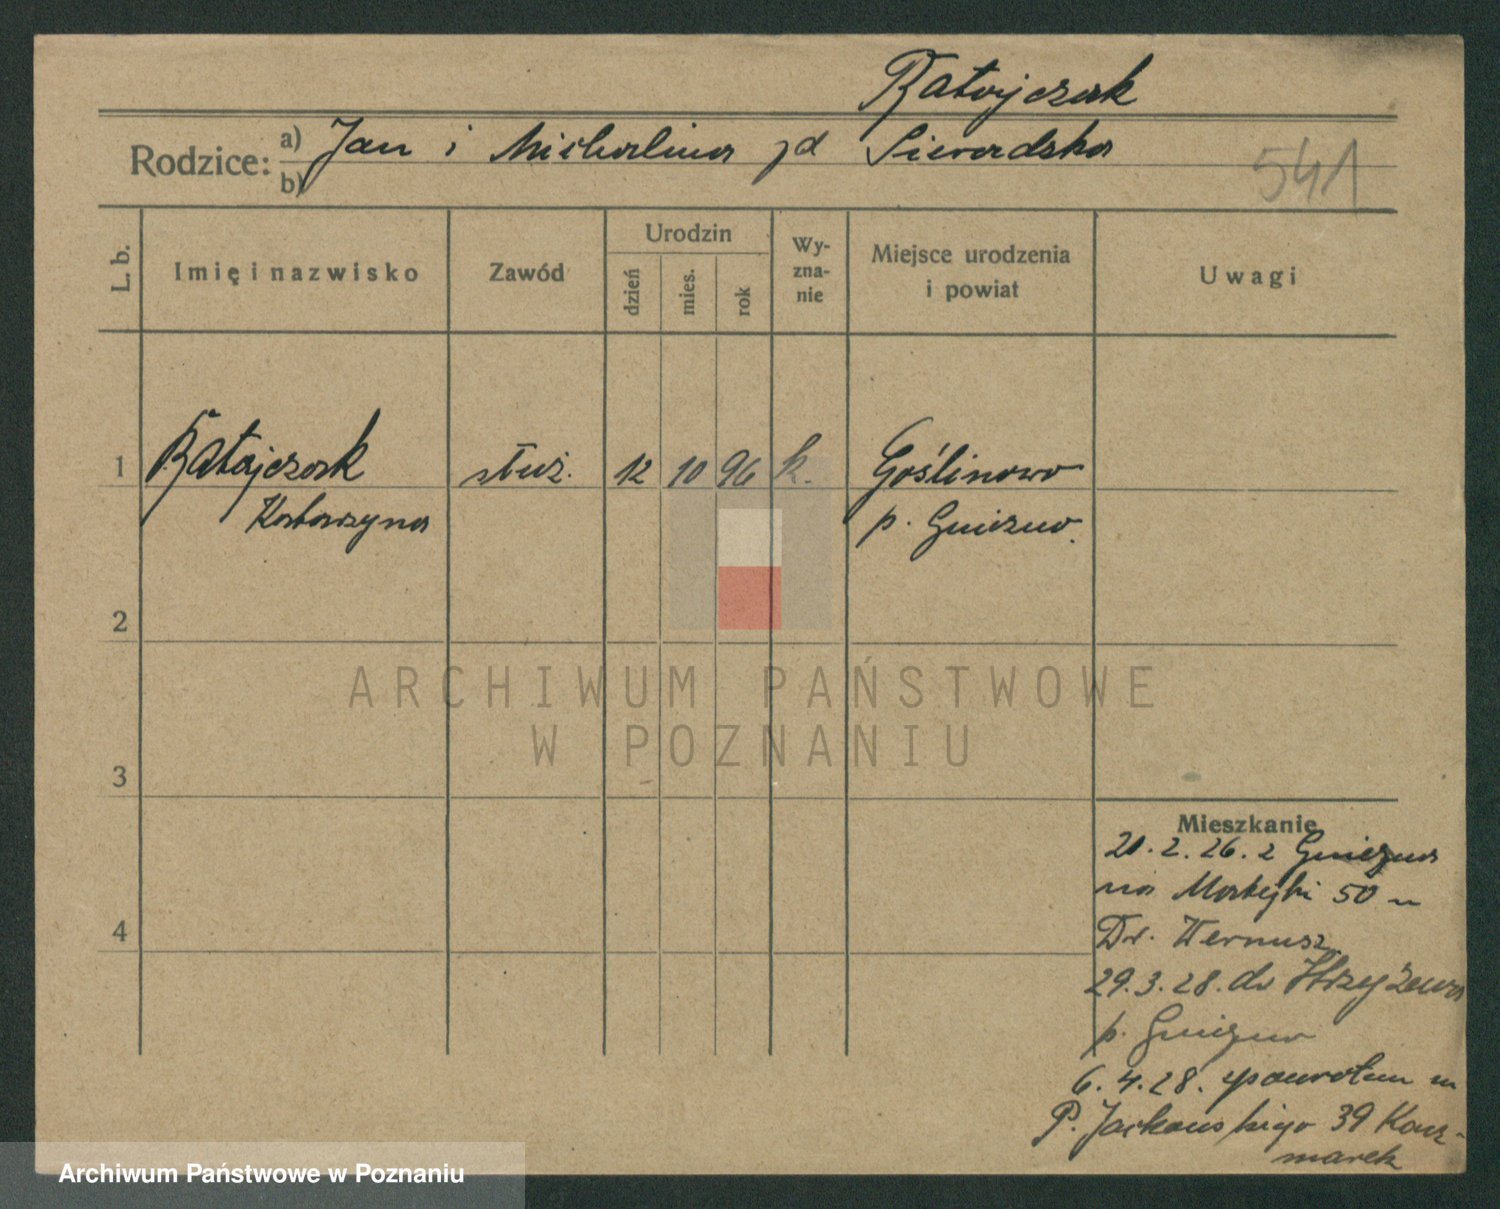 Ratajczak
Rodzice: a) Jan i Michalina zd Sieradzka
b)
541
L. b.
Imię i nazwisko
Zawód
Urodzin
dzień
mies.
rok
Wy-
zna-
nie
Miejsce urodzenia
i powiat
Uwagi
1 Ratajczak służ. 12 10 96 k. Goślinowo
Katarzyna p. Gniezno.
2
ARCHIWUM PAŃSTWOWE
W POZNANIU
3
Mieszkanie
20. 2. 26. z Gniezna
na Matejki 50 u
4
Dr.
29. 3. 28. do
p. Gniezno
6. 4. 28. spowrotem
P. Jackowskiego 39 Kacz-
marek
Archiwum Państwowe w Poznaniu